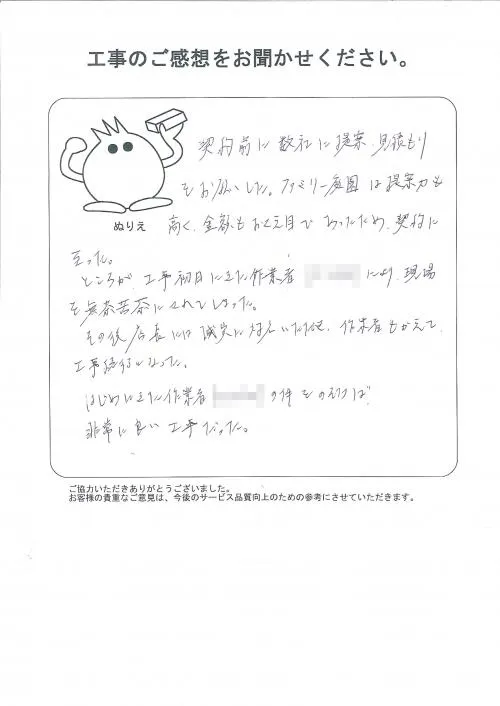 工事のご感想をお聞かせください。
契約前に数社に提案、見積もり
をお願いした。ファミリー庭園は提案力も
ぬりえ
高く、金額もおさえ目であったため、契約に
至った。
ところが、工事初日にきた作業者 により、現場
を無茶苦茶にされてしまった。
その後店長には誠実に対応いただけ、作業者もかえて、
工事続行になった。
はじめにきた作業者 の件をのぞけば
非常に良い工事だった。
ご協力いただきありがとうございました。
お客様の貴重なご意見は、今後のサービス品質向上のための参考にさせていただきます。